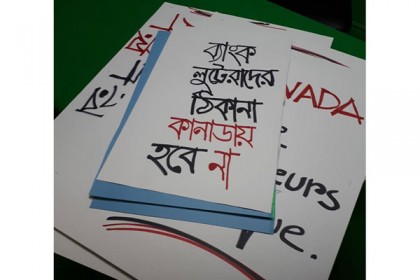 ব্যাংক
লুটেরাদের
ঠিকানা
কানাডায়
হবে না
NADA
eurs
ue.